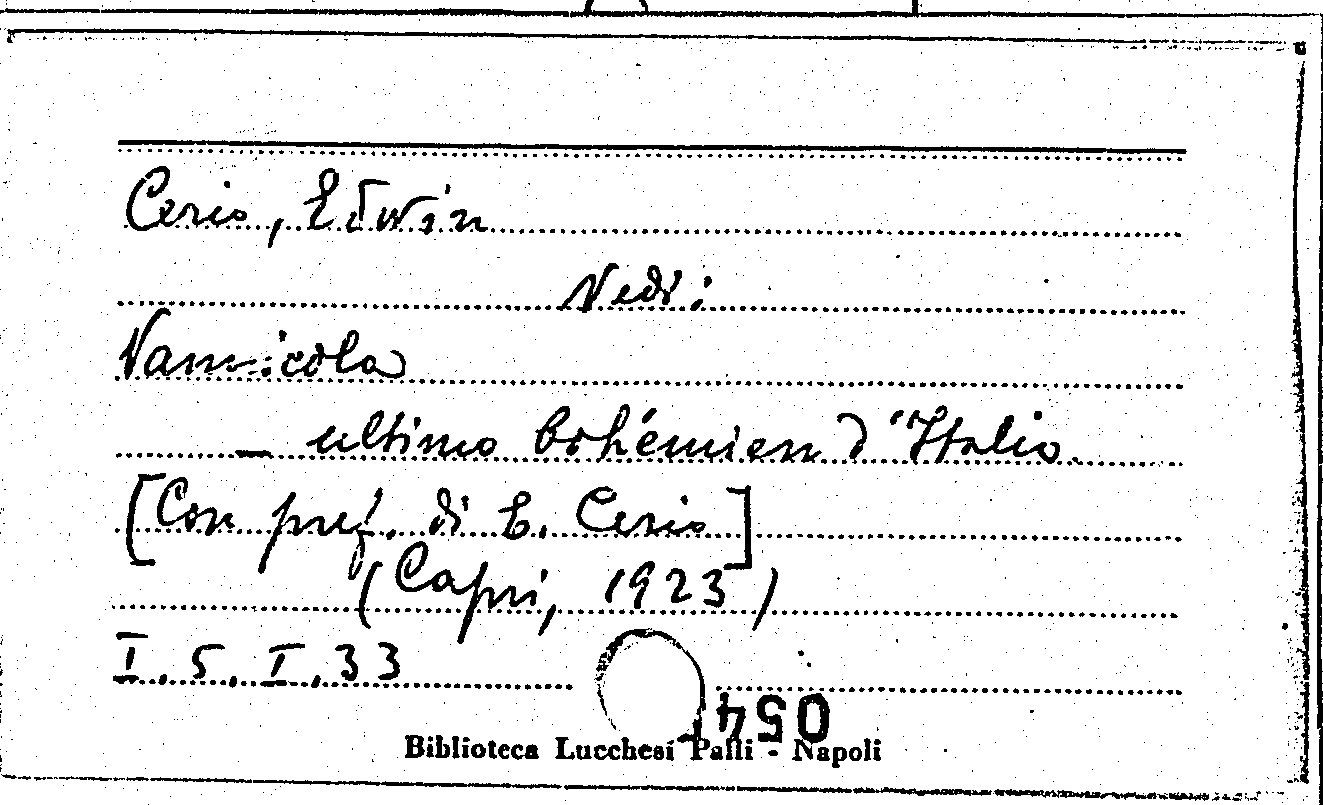 Cerio, Edwin
Vedi:
Vannicola
— ultimo bohémien d'Italia.
[Con pref. di E. Cerio]
(Capri, 1923)
I.5.I.33
054
Biblioteca Lucchesi Palli - Napoli